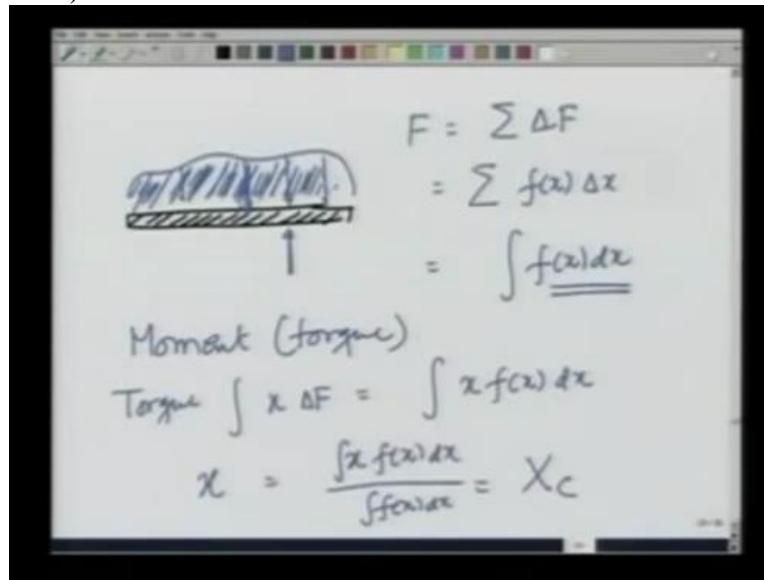 F = Σ ΔF
= Σ f(x) Δx
= ∫ f(x) dx
Moment (torque)
Torque ∫ x ΔF = ∫ x f(x) dx
x = ∫x f(x) dx / ∫f(x) dx = X_C